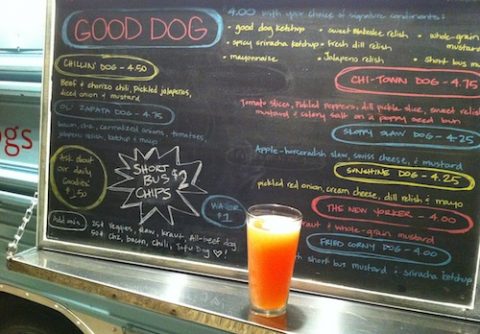 GOOD DOG
4.00 with your choice of signature condiments:
• good dog ketchup • sweet relish • whole-grain mustard
• spicy sriracha ketchup • fresh dill relish
• mayonnaise • Jalapeno relish • short bus
CHILLIN' DOG - 4.50
Beef & chorizo chili, pickled jalapeños,
diced onion & mustard
OL' ZAPATA DOG - 4.75
bacon, caramelized onions, tomatoes,
jalapeño relish, ketchup & mayo
Ask about
our daily
Goodies!
$1.50
SHORT
BUS $2
CHIPS
WATER
$1
Add ons:
25¢ Veggies, slaw, kraut, All-beef dog
50¢ Chz, bacon, chili, Tofu Dog
CHI-TOWN DOG - 4.75
Tomato slices, Pickled Peppers, dill pickle slice, sweet relish
mustard & celery salt on a poppy seed bun
SLOPPY SLAW DOG - 4.25
Apple-horseradish slaw, swiss cheese, & mustard
SUNSHINE DOG - 4.25
pickled red onion, cream cheese, dill relish & mayo
THE NEW YORKER - 4.00
kraut & whole-grain mustard
FRIED CORNY DOG - 4.00
short bus mustard & sriracha ketchup
ogs